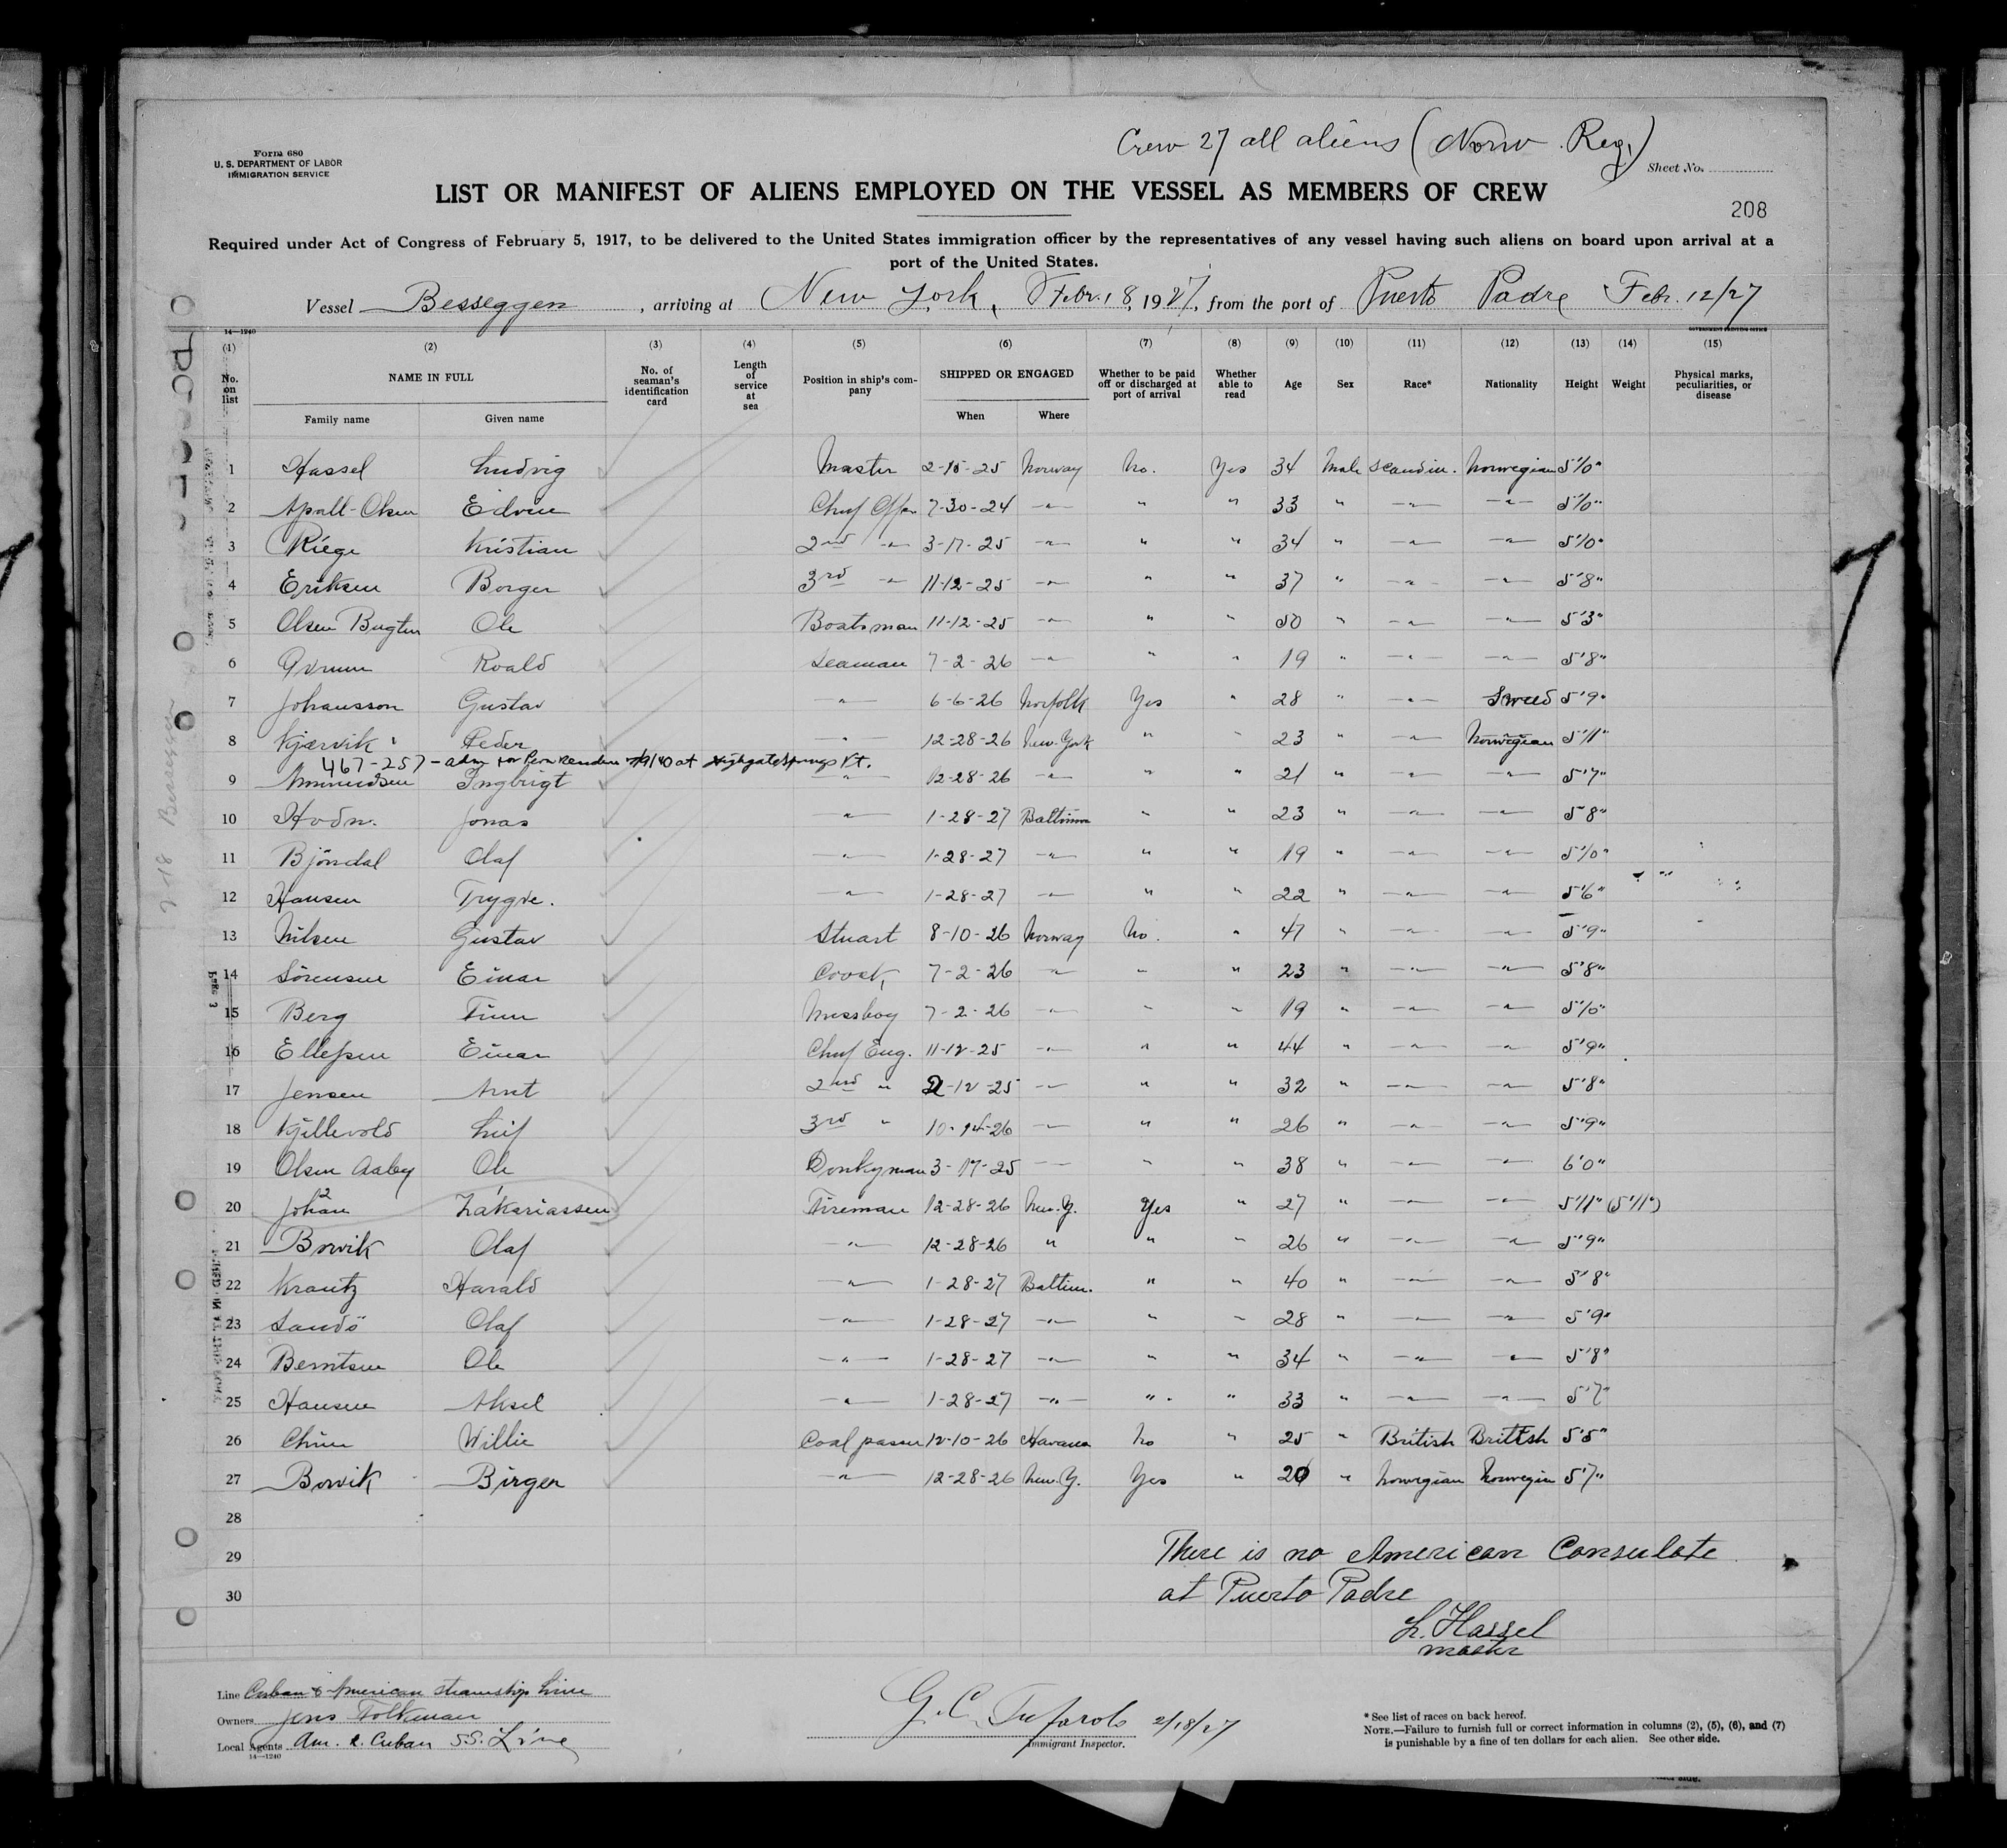 Crew 27 all aliens (Norw. Reg.)
Form 680
U. S. DEPARTMENT OF LABOR
IMMIGRATION SERVICE
Sheet No.
LIST OR MANIFEST OF ALIENS EMPLOYED ON THE VESSEL AS MEMBERS OF CREW
208
Required under Act of Congress of February 5, 1917, to be delivered to the United States immigration officer by the representatives of any vessel having such aliens on board upon arrival at a
port of the United States.
Vessel Besseggen, arriving at New York, Febr. 18, 1927, from the port of Puerto Padre Febr. 12/27
14—1240
(1) (2) (3) (4) (5) (6) (7) (8) (9) (10) (11) (12) (13) (14) (15)
No. on list NAME IN FULL Family name Given name No. of seaman's identification card Length of service at sea Position in ship's company SHIPPED OR ENGAGED When Where Whether to be paid off or discharged at port of arrival Whether able to read Age Sex Race* Nationality Height Weight Physical marks, peculiarities, or disease
1 Hassel Ludvig Master 2-15-25 Norway No. Yes 34 Male Scandin. Norwegian 5'10"
2 Apall-Olsen Edvin Chief Offer 7-30-24 —"— " " 33 " —"— —"— 5'10"
3 Riege Kristian 2nd —"— 3-17-25 —"— " " 34 " —"— —"— 5'10"
4 Eriksen Borger 3rd —"— 11-12-25 —"— " " 37 " —"— —"— 5'8"
5 Olsen Bugten Ole Boatsman 11-12-25 —"— " " 50 " —"— —"— 5'3"
6 Roald Seaman 7-2-26 —"— " " 19 " —"— —"— 5'8"
7 Johansson Gustav —"— 6-6-26 Norfolk Yes " 28 " —"— Sweed 5'9"
8 Kjærvik Peder —"— 12-28-26 New-York " " 23 " —"— Norwegian 5'11"
467-257 - adm for Perm Residence at Highgate Springs Vt.
9 Ammundsen Ingbrigt —"— 12-28-26 —"— " " 21 " —"— —"— 5'7"
10 Hodn. Jonas —"— 1-28-27 Baltimore " " 23 " —"— —"— 5'8"
11 Bjöndal Olaf —"— 1-28-27 —"— " " 19 " —"— —"— 5'10"
12 Hansen Trygve. —"— 1-28-27 —"— " " 22 " —"— —"— 5'6"
13 Nilsen Gustav Stuart 8-10-26 Norway No. " 47 " —"— —"— 5'9"
14 Sörensen Einar Coock, 7-2-26 —"— " " 23 " —"— —"— 5'8"
15 Berg Finn Messboy 7-2-26 —"— " " 19 " —"— —"— 5'10"
16 Ellefsen Einar Chief Eng. 11-12-25 —"— " " 44 " —"— —"— 5'9"
17 Jensen Arnt 2nd " 2-12-25 —"— " " 32 " —"— —"— 5'8"
18 Kjillevold Leif 3rd " 10-14-26 —"— " " 26 " —"— —"— 5'9"
19 Olsen Aaby Ole Donkyman 3-17-25 —"— " " 38 " —"— —"— 6'0"
20 Johan 2 Zakariassen 1 Fireman 12-28-26 New.Y. Yes " 27 " —"— —"— 5'11" (5'11")
21 Borvik Olaf —"— 12-28-26 " " " 26 " —"— —"— 5'9"
22 Krantz Harald —"— 1-28-27 Baltim. " " 40 " —"— —"— 5'8"
23 Sandö Olaf —"— 1-28-27 —"— " " 28 " —"— —"— 5'9"
24 Berntsen Ole —"— 1-28-27 —"— " " 34 " —"— —"— 5'8"
25 Hansen Aksel —"— 1-28-27 —"— " " 33 " —"— —"— 5'7"
26 Willie Coal passer 12-10-26 Havana No " 25 " British British 5'5"
27 Borvik Birger —"— 12-28-26 New.Y. Yes " 20 " Norwegian Norwegin 5'7"
28
29
30
There is no American Consulate
at Puerto Padre
L. Hassel
master
Line Cuban & American Steamship Line
Owners Jens Folkman
Local Agents Am. & Cuban S.S. Line
14—1240
G. C. 2/18/27
Immigrant Inspector.
* See list of races on back hereof.
NOTE.—Failure to furnish full or correct information in columns (2), (5), (6), and (7)
is punishable by a fine of ten dollars for each alien. See other side.
2-18 Besseggen
Page 3